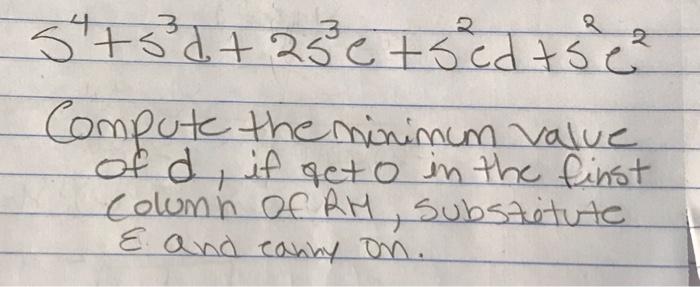 s⁴+s³d+2s³c+s²cd+s²c²
Compute the minimum value
of d, if get 0 in the first
column of RH, substitute
ε and carry on.